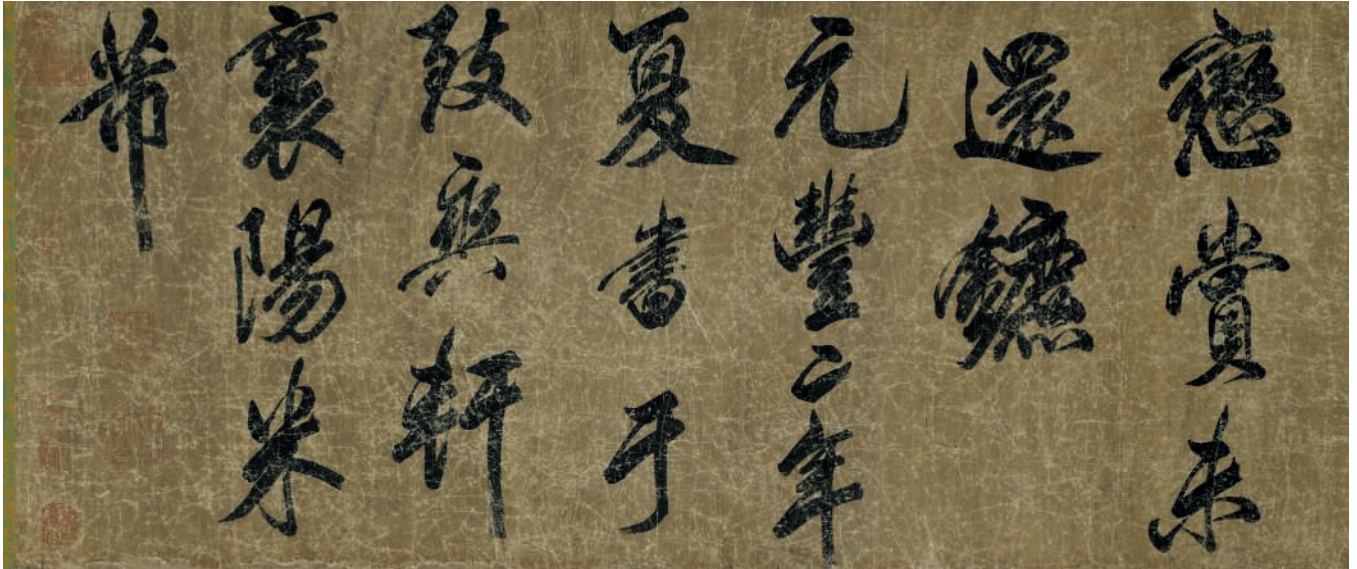 戀賞未
還鑣
元豐二年
夏書于
致爽軒
襄陽米
芾